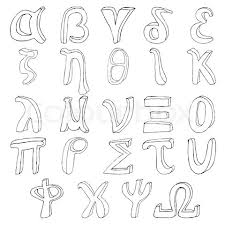 α β γ δ ε
ζ η θ ι κ
λ μ ν Ξ Ο
Π ρ Σ τ υ
Φ χ Ψ Ω